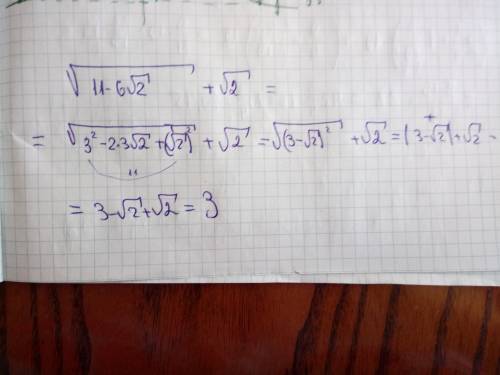 √(11-6√2) + √2 =
= √(3²-2·3√2+(√2)²) + √2 = √(3-√2)² + √2 = |3-√2|+√2 =
+
11
= 3-√2+√2 = 3